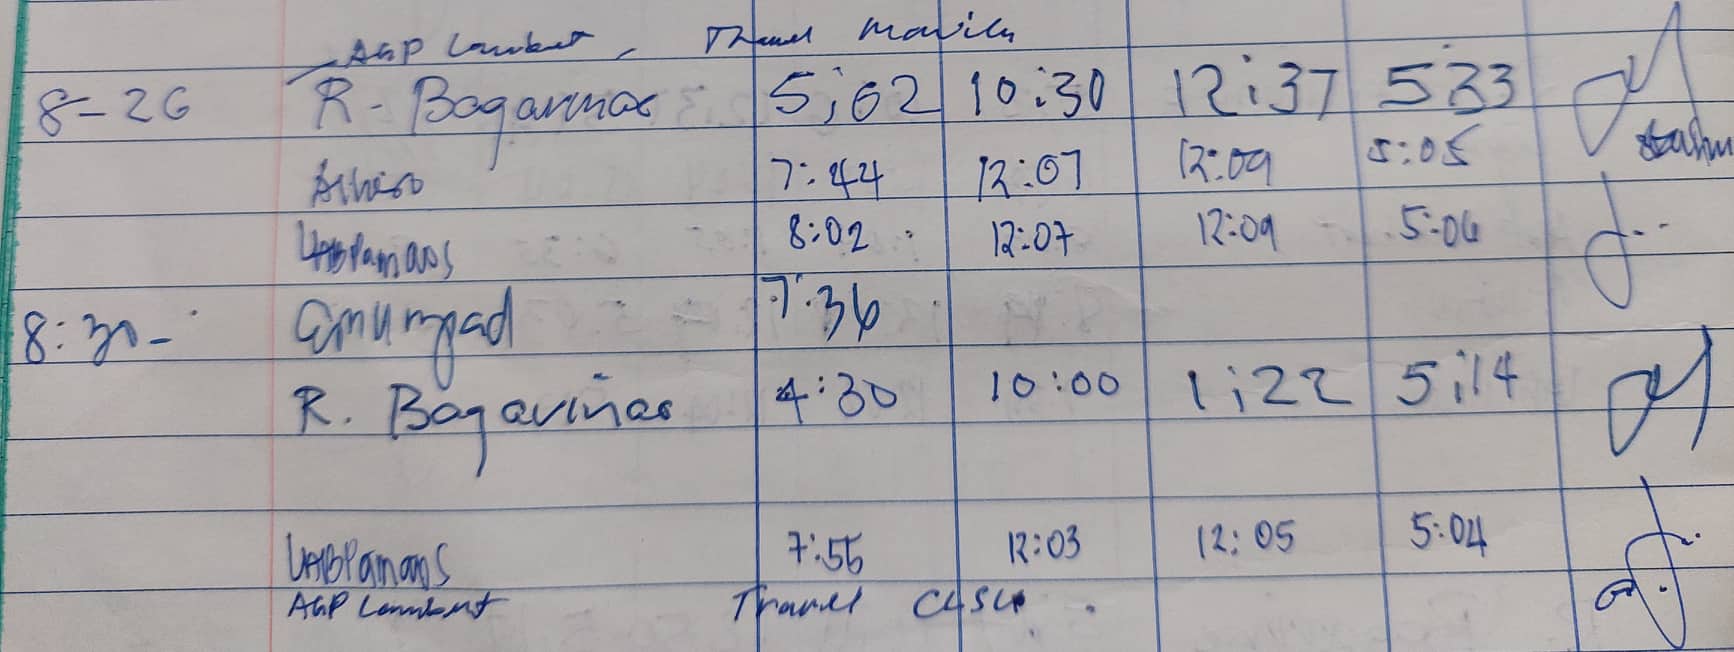 AGP Lambert, Travel Manila
8-26 R. Bagarinas 5:02 10:30 12:37 5 33
7:44 12:07 12:09 5:05
8:02 12:07 12:09 5:06
8:30- Emumpad 7:36
R. Bagarinas 4:30 10:00 1:22 5:14
7:55 12:03 12:05 5:04
AGP Lambert Travel CLSU